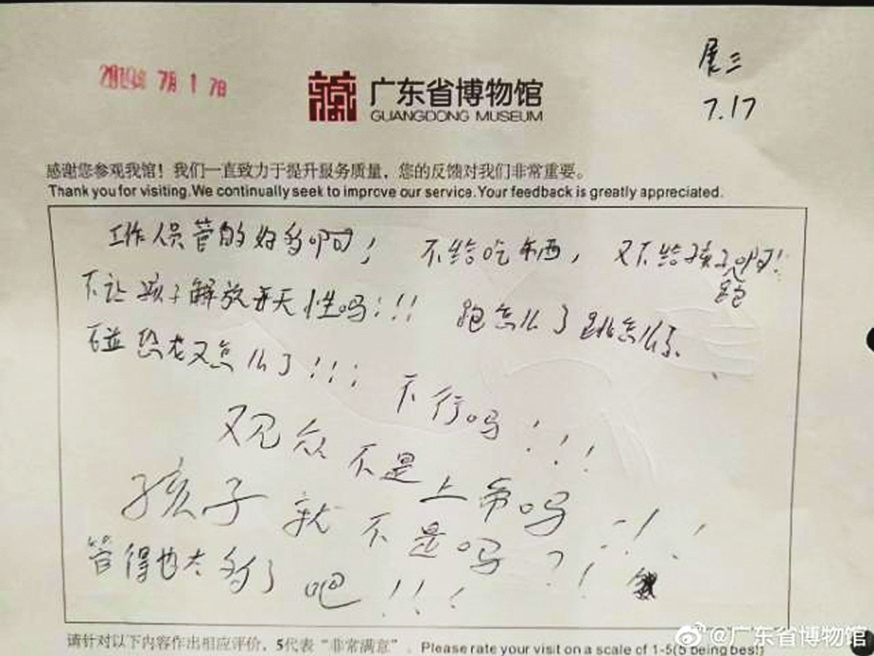 2019年 7月 1 7日
展三
7.17
广东省博物馆
GUANGDONG MUSEUM
感谢您参观我馆！我们一直致力于提升服务质量，您的反馈对我们非常重要。
Thank you for visiting. We continually seek to improve our service. Your feedback is greatly appreciated.
工作人员管的好多啊！ 不给吃东西， 又不给孩子跑啊！
不让孩子解放天性吗！！！ 跑怎么了跳怎么了
碰恐龙又怎么了！！！ 不行吗！！！
观众不是上帝吗！！！
孩子就不是吗？！
管得也太多了吧！！！
请针对以下内容作出相应评价，5代表“非常满意”。 Please rate your visit on a scale of 1-5(5 being best)
@广东省博物馆